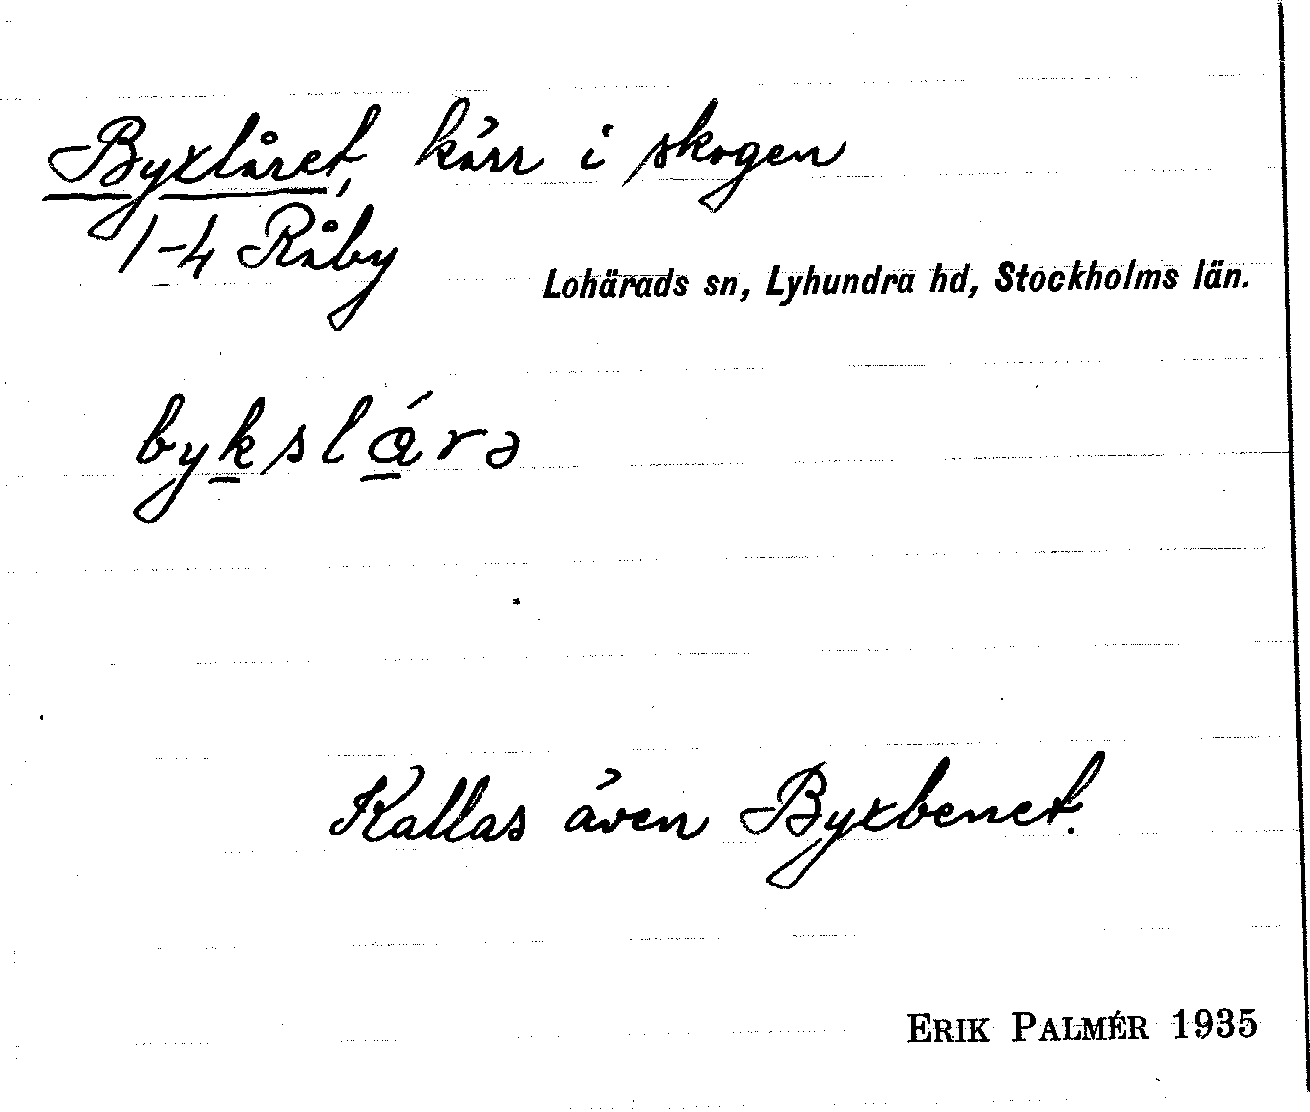 Byxlåret, kärr i skogen
1-4 Råby
Lohärads sn, Lyhundra hd, Stockholms län.
bykslárə
Kallas även Byxbenet.
ERIK PALMÉR 1935